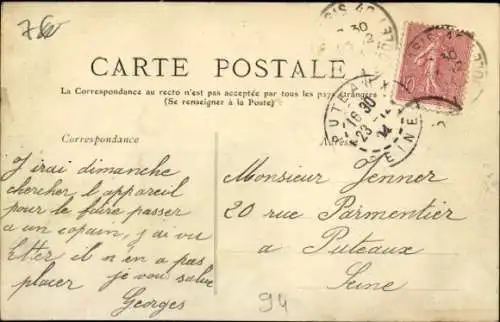 CARTE POSTALE
La Correspondance au recto n'est pas acceptée par tous les pays étrangers
(Se renseigner à la Poste)
Correspondance
J irai dimanche
chercher l appareil
pour le faire passer
a un copain, j ai vu
il n en a pas
placer je vous salue
Georges
Adresse
Monsieur Jenner
20 rue Parmentier
a Puteaux
Seine
94
PUTEAUX
16 30
23 - 12
SEINE
30
10